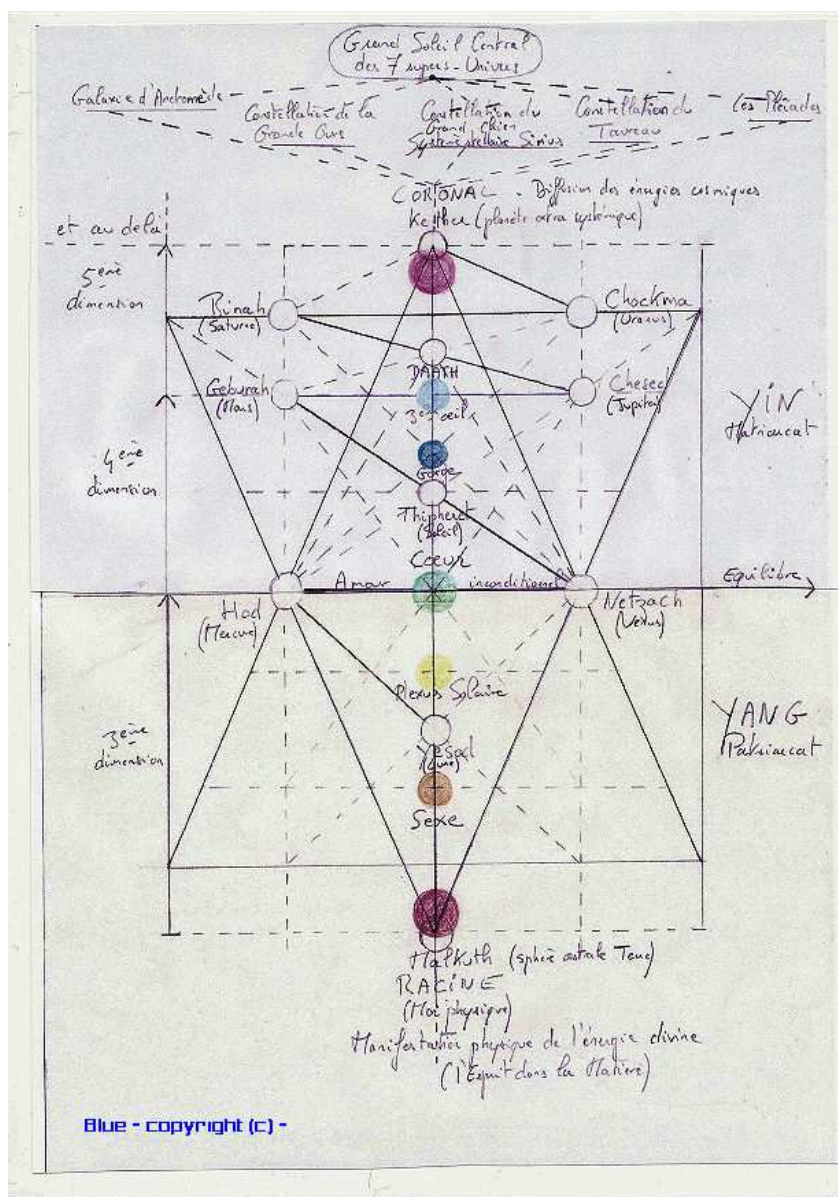 Grand Soleil Central
des 7 supers-Univers
Galaxie d'Andromède
Constellation de la
Grande Ours
Constellation du
Grand Chien
Système stellaire Sirius
Constellation du
Taureau
Les Pléiades
CORONAL - Diffusion des énergies cosmiques
Kether (planète extra systémique)
et au delà
5ème
dimension
Binah
(Saturne)
Chockma
(Uranus)
DAATH
Geburah
(Mars)
3ème œil
Chesed
(Jupiter)
YIN
Matriarcat
4ème
dimension
Gorge
Thipheret
(Soleil)
Cœur
Amour inconditionnel
Equilibre
Hod
(Mercure)
Netzach
(Vénus)
Plexus Solaire
3ème
dimension
Yesod
(Lune)
YANG
Patriarcat
Sexe
Malkuth (sphère astrale Terre)
RACINE
(Moi physique)
Manifestation physique de l'énergie divine
(l'Esprit dans la Matière)
Blue - copyright (c) -